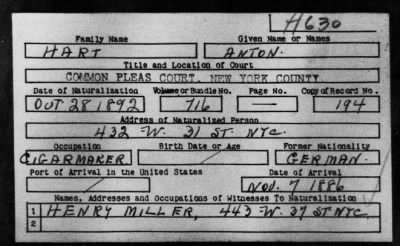 H630
Family Name Given Name or Names
HART ANTON.
Title and Location of Court
COMMON PLEAS COURT, NEW YORK COUNTY
Date of Naturalization Volume or Bundle No. Page No. Copy of Record No.
OCT 28 1892 716 — 194
Address of Naturalized Person
432 W. 31 ST. NYC.
Occupation Birth Date or Age Former Nationality
CIGARMAKER GERMAN.
Port of Arrival in the United States Date of Arrival
NOV. 7 1886
Names, Addresses and Occupations of Witnesses To Naturalization
1 HENRY MILLER, 443 W. 37 ST NYC
2